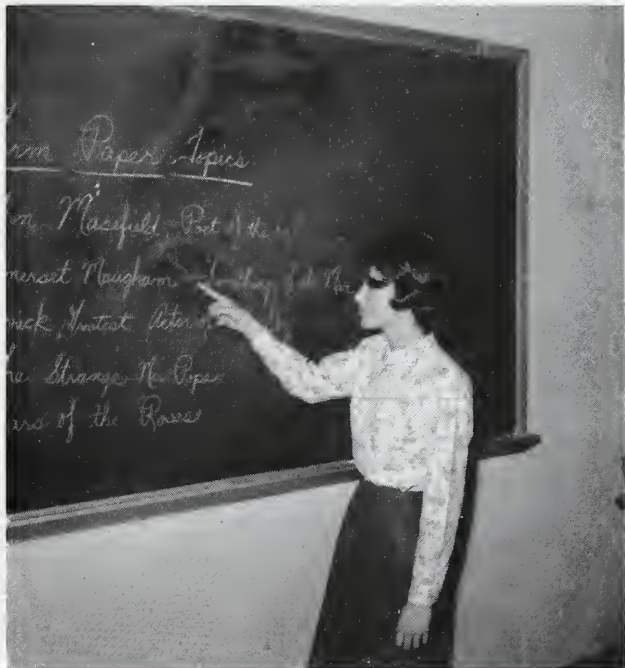 rm Paper Topics
n Masefield Poet of the
merset Maugham
rick Greatest Actor
he Strange Mr. Pope
ars of the Roses